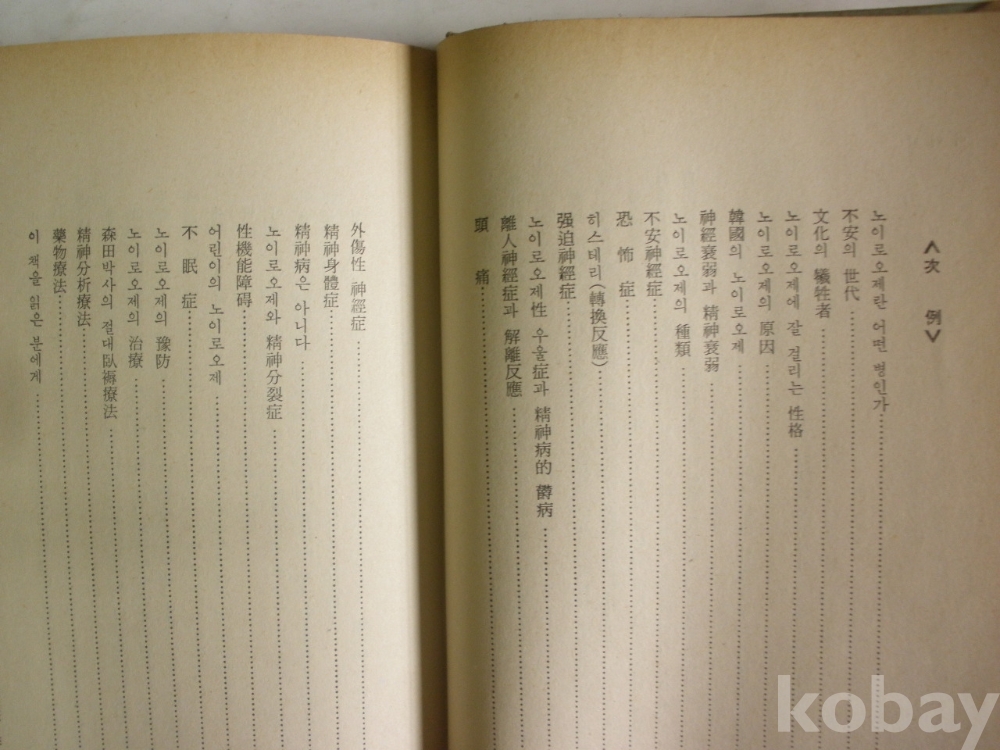 <次 例>
노이로오제란 어떤 병인가
不安의 世代
文化의 犠牲者
노이로오제에 잘 걸리는 性格
노이로오제의 原因
韓國의 노이로오제
神經衰弱과 精神衰弱
노이로오제의 種類
不安神經症
恐怖症
히스테리(轉換反應)
强迫神經症
노이로오제性 우울症과 精神病的 欝病
離人神經症과 解離反應
頭痛
外傷性 神經症
精神身體症
精神病은 아니다
노이로오제와 精神分裂症
性機能障碍
어린이의 노이로오제
不眠症
노이로오제의 豫防
노이로오제의 治療
森田박사의 절대臥褥療法
精神分析療法
藥物療法
이 책을 읽은 분에게
kobay